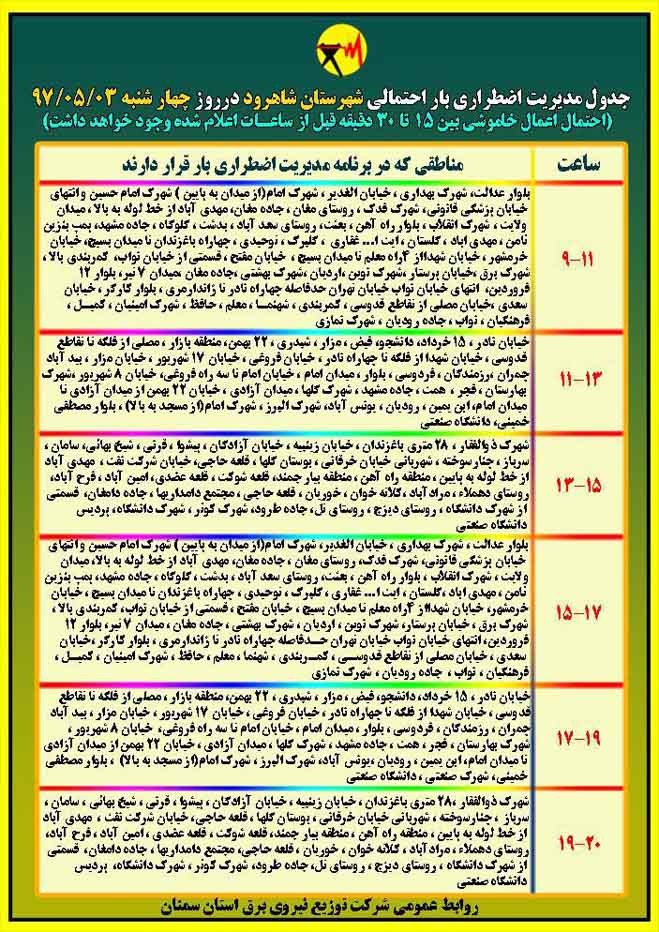 جدول مدیریت اضطراری بار احتمالی شهرستان شاهرود درروز چهار شنبه ۹۷/۰۵/۰۳
(احتمال اعمال خاموشی بین ۱۵ تا ۳۰ دقیقه قبل از ساعات اعلام شده وجود خواهد داشت)
ساعت
مناطقی که در برنامه مدیریت اضطراری بار قرار دارند
۹-۱۱
بلوار عدالت، شهرک بهداری ، خیابان الغدیر ، شهرک امام(از میدان به پایین ) شهرک امام حسین و انتهای
خیابان پزشکی قانونی، شهرک فدک ، روستای مغان ، جاده مغان، مهدی آباد از خط لوله به بالا، میدان
ولایت ، شهرک انقلاب ، بلوار راه آهن ، بعثت، روستای سعد آباد ، بدشت ، کلوکاه ، جاده مشهد، پمپ بنزین
ثامن ، مهدی اباد ، گلستان ، ایت ا... غفاری ، گلبرگ ، توحیدی ، چهاراه باغزندان تا میدان بسیج، خیابان
خرمشهر ، خیابان شهدااز ۴راه معلم تا میدان بسیج ، خیابان مفتح ، قسمتی از خیابان نواب، کمربندی بالا ،
شهرک برق ،خیابان پرستار ،شهرک نوین ،اردیان ،شهرک بهشتی ،جاده مغان ،میدان ۷ تیر، بلوار ۱۲
فروردین، انتهای خیابان نواب خیابان تهران حدفاصله چهاراه نادر تا ژاندارمری ، بلوار کارگر ، خیابان
سعدی ،خیابان مصلی از تقاطع فدوسی ، کمربندی ، شهنما ، معلم ، حافظ ، شهرک امینیان ، کمیل ،
فرهنگیان ، نواب ، جاده رودیان ، شهرک نمازی
۱۱-۱۳
خیابان نادر ، ۱۵ خرداد، دانشجو، فیض ، مزار ، شیدری ، ۲۲ بهمن، منطقه بازار ، مصلی از فلکه تا تقاطع
قدوسی ، خیابان شهدا از فلکه تا چهاراه نادر ، خیابان فروغی ، خیابان ۱۷ شهریور ، خیابان مزار ، بید آباد
چمران ، رزمندگان ، فردوسی ، بلوار ، میدان امام ، خیابان امام تا سه راه فوغی، خیابان ۸ شهریور ،شهرک
بهارستان ، فجر ، همت ، جاده مشهد ، شهرک گلها ، میدان آزادی ، خیابان ۲۲ بهمن از میدان آزادی تا
میدان امام، ابن یمین ، رودیان ، یونس آباد، شهرک البرز ، شهرک امام(از مسجد به بالا) ، بلوار مصطفی
خمینی، دانشگاه صنعتی
۱۳-۱۵
شهرک ذوالفقار ، ۲۸ متری باغزندان ، خیابان زینبیه ، خیابان آزادگان ، پیشوا ، قرنی ، شیخ بهائی، سامان ،
سرباز ، چنارسوخته ، شهربانی خیابان خرقانی ، بوستان گلها ، قلعه حاجی، خیابان شرکت نفت ، مهدی آباد
از خط لوله به پایین ، منطقه راه آهن ،منطقه بیار جمند، قلعه شوکت ، قلعه عضدی ، امین آباد ، فرح آباد،
روستای دهملاء ، مراد آباد ، کلاته خوان ، خوریان ، قلعه حاجی ، مجتمع دامداریها ، جاده دامغان، قسمتی
از شهرک دانشگاه ، روستای دیزج ، روستای تل، جاده طرود، شهرک کوثر ، شهرک دانشگاه، پردیس
دانشگاه صنعتی
۱۵-۱۷
بلوار عدالت ، شهرک بهداری ، خیابان الغدیر، شهرک امام(از میدان به پایین ) شهرک امام حسین و انتهای
خیابان پزشکی قانونی، شهرک فدک، روستای مغان ، جاده مغان، مهدی آباد از خط لوله به بالا، میدان
ولایت ، شهرک انقلاب ، بلوار راه آهن ، بعثت، روستای سعد آباد ، بدشت ، کلوکاه ، جاده مشهد، پمپ بنزین
ثامن ، مهدی اباد ، گلستان ، ایت ا... غفاری ، گلبرگ ، توحیدی ، چهاراه باغزندان تا میدان بسیج ، خیابان
خرمشهر، خیابان شهدااز ۴راه معلم تا میدان بسیج ، خیابان مفتح ، قسمتی از خیابان نواب، کمربندی بالا ،
شهرک برق ، خیابان پرستار، شهرک نوین ، اردیان ، شهرک بهشتی ، جاده مغان ، میدان ۷ تیر، بلوار ۱۲
فروردین، انتهای خیابان نواب خیابان تهران حدفاصله چهاراه نادر تا ژاندارمری ، بلوار کارگر ،خیابان
سعدی ، خیابان مصلی از تقاطع قدوسی ، کمربندی ، شهنما ، معلم ، حافظ ، شهرک امینیان ، کمیل ،
فرهنگیان ، نواب ، جاده رودیان ، شهرک نمازی
۱۷-۱۹
خیابان نادر ، ۱۵ خرداد، دانشجو، فیض ، مزار ، شیدری ، ۲۲ بهمن، منطقه بازار ، مصلی از فلکه تا تقاطع
قدوسی ، خیابان شهدا از فلکه تا چهاراه نادر ، خیابان فروغی ، خیابان ۱۷ شهریور ، خیابان مزار ، بید آباد
چمران ، رزمندگان ، فردوسی ، بلوار ، میدان امام ، خیابان امام تا سه راه فروغی، خیابان ۸ شهریور ،
شهرک بهارستان ، فجر ، همت ، جاده مشهد ، شهرک گلها ، میدان آزادی ، خیابان ۲۲ بهمن از میدان آزادی
تا میدان امام، ابن یمین ، رودیان ،یونس آباد، شهرک البرز ، شهرک امام(از مسجد به بالا) ، بلوار مصطفی
خمینی، شهرک صنعتی ، دانشگاه صنعتی
۱۹-۲۰
شهرک ذوالفقار ،۲۸ متری باغزندان ، خیابان زینبیه ، خیابان آزادگان ، پیشوا ، قرنی ، شیخ بهائی ، سامان ،
سرباز ، چنارسوخته ، شهربانی خیابان خرقانی ، بوستان گلها ، قلعه حاجی، خیابان شرکت نفت ، مهدی آباد
از خط لوله به پایین ، منطقه راه آهن ،منطقه بیار جمند، قلعه شوکت ، قلعه عضدی ، امین آباد ، فرح آباد،
روستای دهملاء ، مراد آباد ، کلاته خوان ، خوریان ، قلعه حاجی، مجتمع دامداریها ، جاده دامغان، قسمتی
از شهرک دانشگاه ، روستای دیزج ، روستای تل، جاده طرود، شهرک کوثر ، شهرک دانشگاه، پردیس
دانشگاه صنعتی
روابط عمومی شرکت توزیع نیروی برق استان سمنان